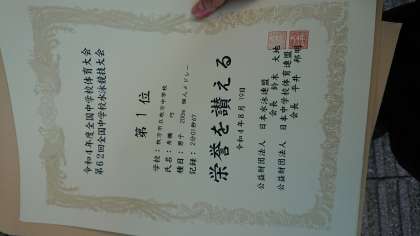 令和4年度全国中学校体育大会
第62回全国中学校水泳競技大会
第1位
学校：
氏名：
種目：男子 200m 個人メドレー
記録：2分01秒67
栄誉を讃える
令和4年8月19日
公益財団法人 日本水泳連盟
会長 鈴木 大地
公益財団法人 日本中学校体育連盟
会長 平井 邦明